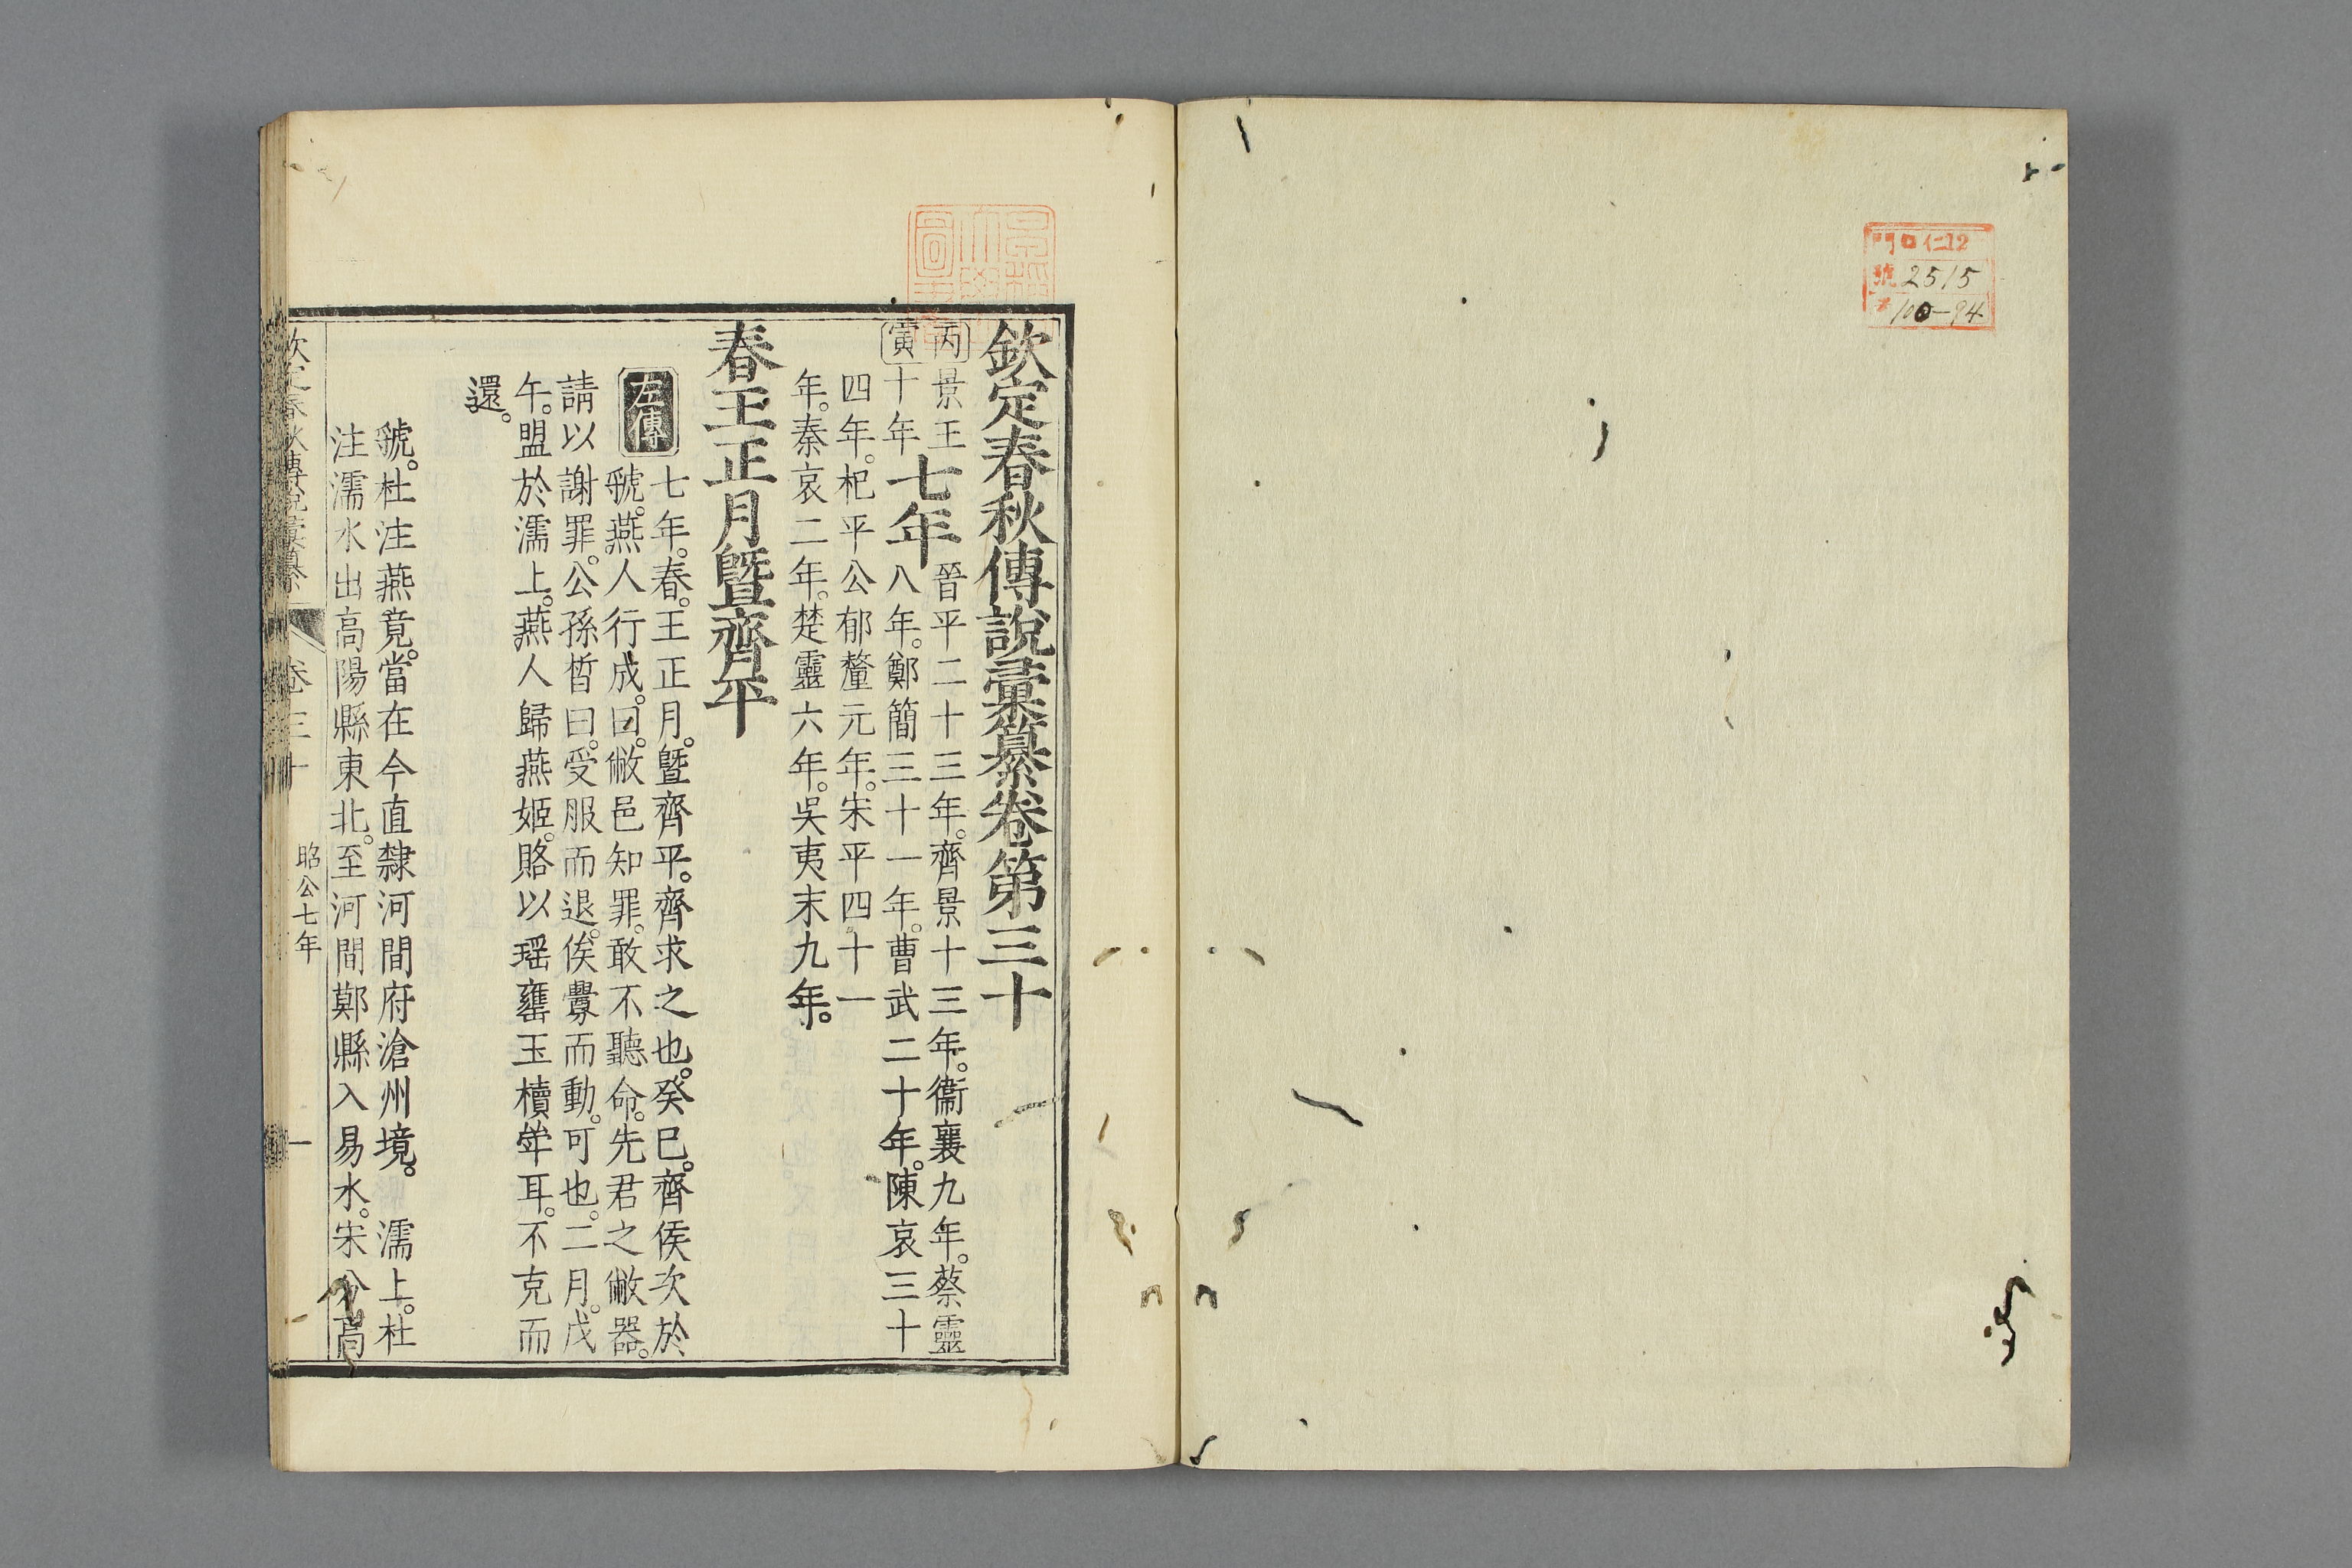 門 口 仁12
號 2515
100-94
欽定春秋傳說彙纂卷第三十
丙寅
景王十年
七年
晉平二十三年。齊景十三年。衞襄九年。蔡靈
八年。鄭簡三十一年。曹武二十年。陳哀三十
四年。杞平公郁釐元年。宋平四十一
年。秦哀二年。楚靈六年。吳夷末九年。
春王正月曁齊平
左傳
七年。春。王正月。曁齊平。齊求之也。癸巳。齊侯次於
虢。燕人行成。曰。敝邑知罪。敢不聽命。先君之敝器。
請以謝罪。公孫晳曰。受服而退。俟釁而動。可也。二月。戊
午。盟於濡上。燕人歸燕姬。賂以瑶罋玉櫝斝耳。不克而
還。
虢。杜注燕竟。當在今直隸河間府滄州境。 濡上。杜
注濡水出高陽縣東北。至河間鄚縣入易水。宋分高
欽定春秋傳說彙纂 卷三十 昭公七年 一